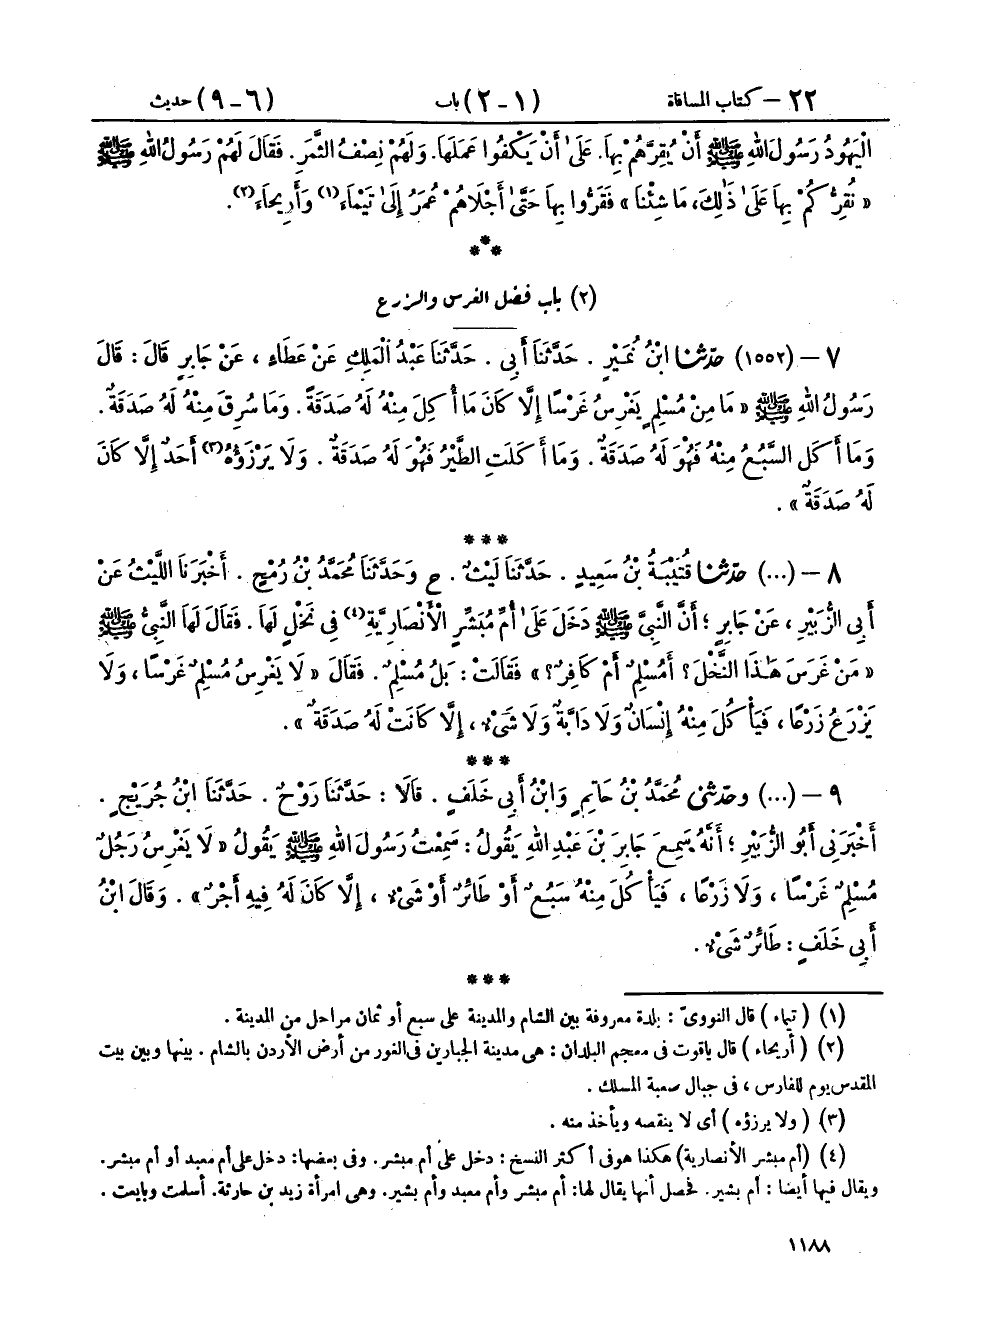 ٢٢ – كتاب المساقاة (١ – ٢) باب (٦ – ٩) حديث
الْيَهُودُ رَسُولَ اللهِ ﷺ أَنْ يُقِرَّهُمْ بِهَا. عَلَىٰ أَنْ يَكْفُوا عَمَلَهَا. وَلَهُمْ نِصْفُ الثَّمَرِ. فَقَالَ لَهُمْ رَسُولُ اللهِ ﷺ
« نُقِرُّكُمْ بِهَا عَلَىٰ ذَٰلِكَ، مَا شِئْنَا » فَقَرُّوا بِهَا حَتَّىٰ أَجْلَاهُمْ عُمَرُ إِلَىٰ تَيْمَاءَ(١) وَأَرِيحَاءَ(٢).
***
(٢) باب فضل الغرس والزرع
٧ – (١٥٥٢) حَدَّثَنَا ابْنُ نُمَيْرٍ . حَدَّثَنَا أَبِي . حَدَّثَنَا عَبْدُ الْمَلِكِ عَنْ عَطَاءٍ ، عَنْ جَابِرٍ قَالَ : قَالَ
رَسُولُ اللهِ ﷺ « مَا مِنْ مُسْلِمٍ يَغْرِسُ غَرْسًا إِلَّا كَانَ مَا أُكِلَ مِنْهُ لَهُ صَدَقَةً . وَمَا سُرِقَ مِنْهُ لَهُ صَدَقَةٌ .
وَمَا أَكَلَ السَّبُعُ مِنْهُ فَهُوَ لَهُ صَدَقَةٌ . وَمَا أَكَلَتِ الطَّيْرُ فَهُوَ لَهُ صَدَقَةٌ . وَلَا يَرْزَؤُهُ(٣) أَحَدٌ إِلَّا كَانَ
لَهُ صَدَقَةٌ » .
***
٨ – (...) حَدَّثَنَا قُتَيْبَةُ بْنُ سَعِيدٍ . حَدَّثَنَا لَيْثٌ . ح وَحَدَّثَنَا مُحَمَّدُ بْنُ رُمْحٍ . أَخْبَرَنَا اللَّيْثُ عَنْ
أَبِي الزُّبَيْرِ ، عَنْ جَابِرٍ ؛ أَنَّ النَّبِيَّ ﷺ دَخَلَ عَلَىٰ أُمِّ مُبَشِّرٍ الْأَنْصَارِيَّةِ(٤) فِي نَخْلٍ لَهَا . فَقَالَ لَهَا النَّبِيُّ ﷺ
« مَنْ غَرَسَ هَٰذَا النَّخْلَ ؟ أَمُسْلِمٌ أَمْ كَافِرٌ ؟ » فَقَالَتْ : بَلْ مُسْلِمٌ . فَقَالَ « لَا يَغْرِسُ مُسْلِمٌ غَرْسًا ، وَلَا
يَزْرَعُ زَرْعًا ، فَيَأْكُلَ مِنْهُ إِنْسَانٌ وَلَا دَابَّةٌ وَلَا شَيْءٌ ، إِلَّا كَانَتْ لَهُ صَدَقَةٌ » .
***
٩ – (...) وحَدَّثَنِي مُحَمَّدُ بْنُ حَاتِمٍ وَابْنُ أَبِي خَلَفٍ . قَالَا : حَدَّثَنَا رَوْحٌ . حَدَّثَنَا ابْنُ جُرَيْجٍ .
أَخْبَرَنِي أَبُو الزُّبَيْرِ ؛ أَنَّهُ سَمِعَ جَابِرَ بْنَ عَبْدِ اللهِ يَقُولُ : سَمِعْتُ رَسُولَ اللهِ ﷺ يَقُولُ « لَا يَغْرِسُ رَجُلٌ
مُسْلِمٌ غَرْسًا ، وَلَا زَرْعًا ، فَيَأْكُلَ مِنْهُ سَبُعٌ أَوْ طَائِرٌ أَوْ شَيْءٌ ، إِلَّا كَانَ لَهُ فِيهِ أَجْرٌ » . وَقَالَ ابْنُ
أَبِي خَلَفٍ : طَائِرٌ شَيْءٌ .
***
(١) (تيماء) قال النوويّ : بلدة معروفة بين الشام والمدينة على سبع أو ثمان مراحل من المدينة .
(٢) (أريحاء) قال ياقوت فى معجم البلدان : هى مدينة الجبارين فى الغور من أرض الأردن بالشام . بينها وبين بيت
المقدس يوم للفارس ، فى جبال صعبة المسلك .
(٣) (ولا يرزؤه) أى لا ينقصه ويأخذ منه .
(٤) (أم مبشر الأنصارية) هكذا هو فى أكثر النسخ : دخل على أم مبشر. وفى بعضها: دخل على أم معبد أو أم مبشر.
ويقال فيها أيضا : أم بشير. فحصل أنها يقال لها: أم مبشر وأم معبد وأم بشير. وهى امرأة زيد بن حارثة. أسلمت وبايعت .
١١٨٨